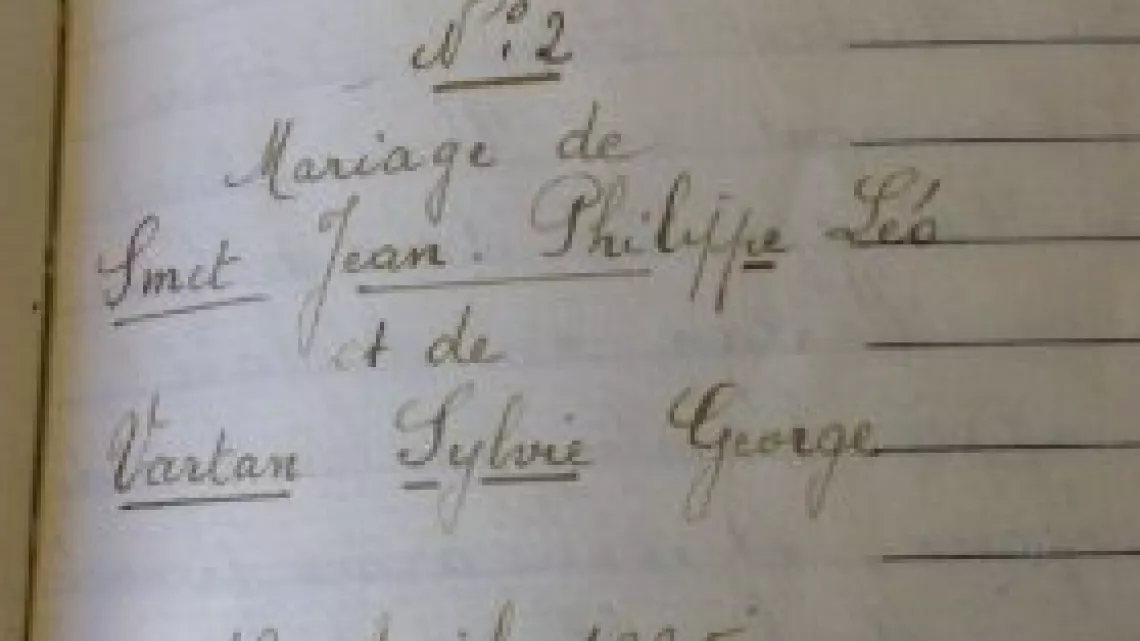 N°: 2
Mariage de
Smet Jean. Philippe Léo
et de
Vartan Sylvie George